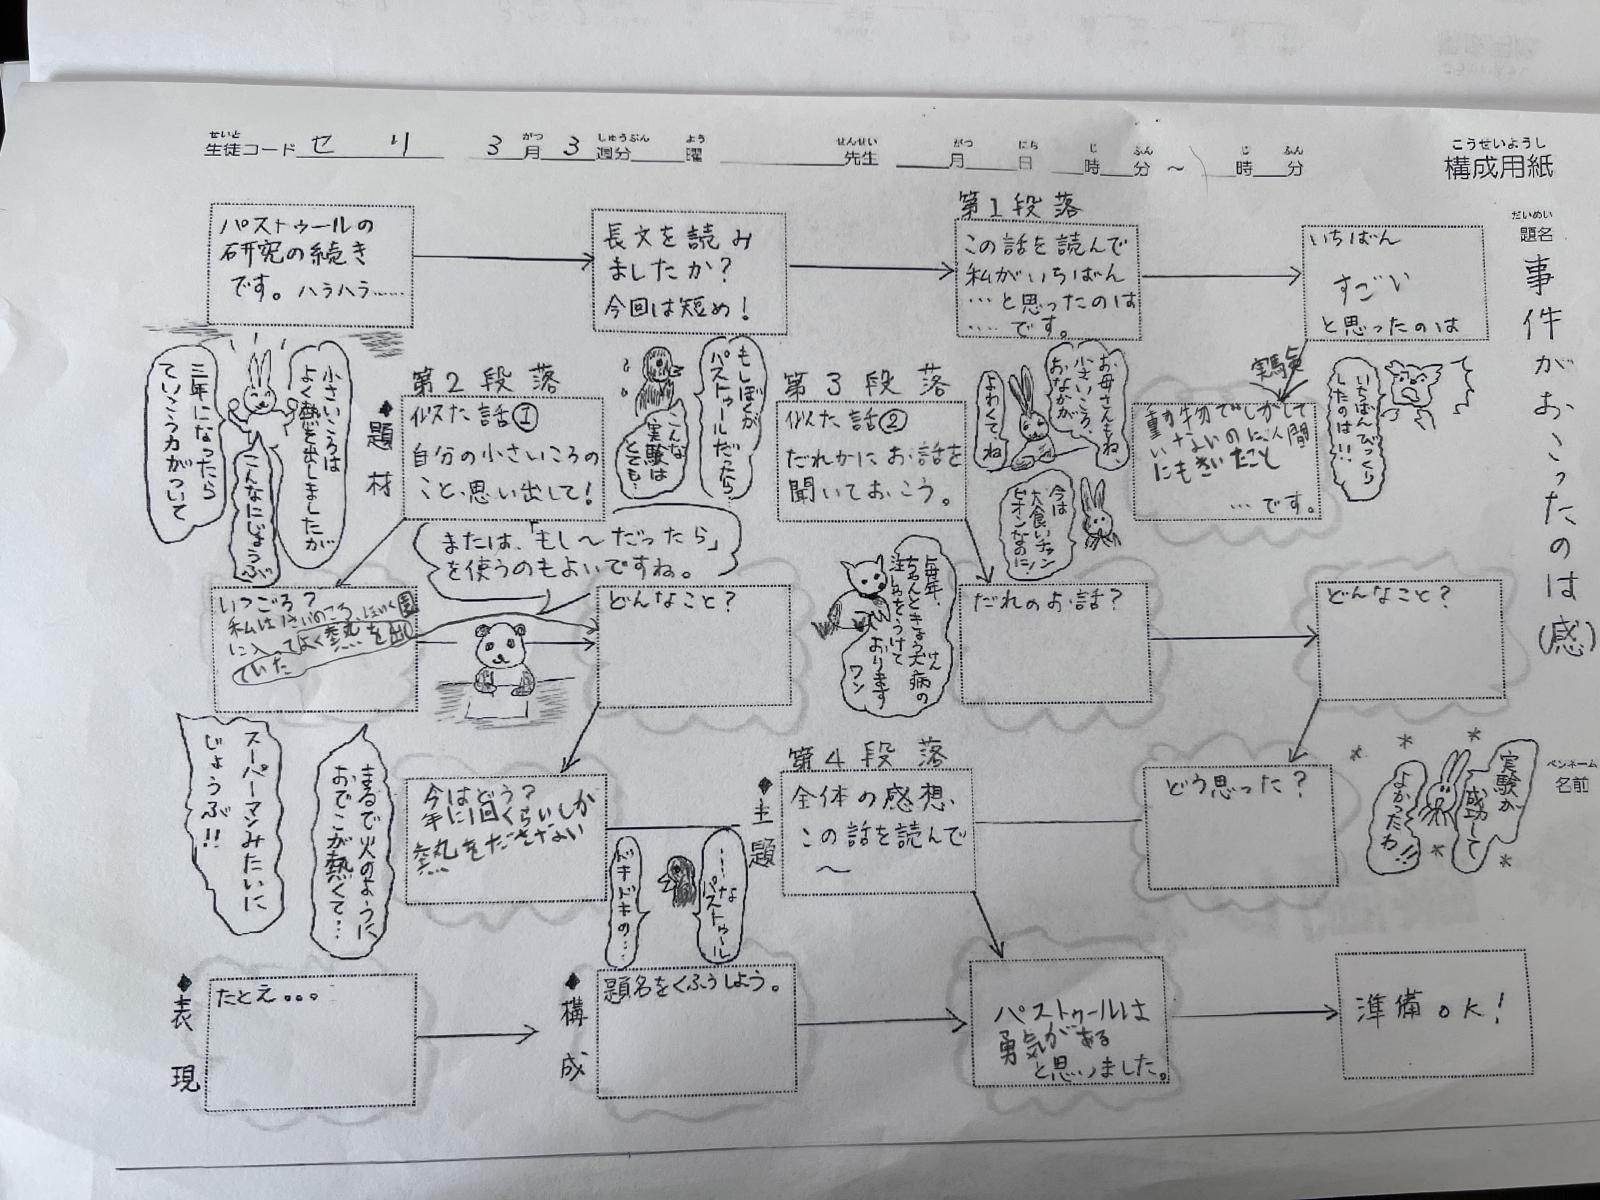 せいと
生徒コード セ リ 3月 3週分 曜 先生 月 日 時 分 ～ 時 分
がつ しゅうぶん よう せんせい がつ にち じ ふん じ ふん
こうせいようし
構成用紙
だいめい
題名
事件がおこったのは(感)
ペンネーム
名前
パストゥールの
研究の続き
です。ハラハラ……
長文を読み
ましたか？
今回は短め！
第1段落
この話を読んで
私がいちばん
…と思ったのは
‥‥です。
いちばん
すごい
と思ったのは
実験
動物でしかして
いないのに、人間
にもきいたこと
…です。
いちばんびっくり
したのは!!
◆題材
小さいころは
よく熱を出しましたが
三年になったら
ていこう力がついて
こんなにじょうぶ
第2段落
似た話①
自分の小さいころの
こと、思い出して！
もしぼくが
パストゥールだったら…
こんな
実験は
とても…
または、「もし～だったら」
を使うのもよいですね。
第3段落
似た話②
だれかにお話を
聞いておこう。
お母さんもね、
小さいころ、
おなかが
よわくてね
今は
大食いチャン
ピオンなのに！
いつごろ？
私は小さいのころ、ほいく園
に入ってよく熱を出し
ていた
どんなこと？
毎年、
ちゃんときょう犬病の
けん
注しゃをうけて
おります
ワン
だれのお話？
どんなこと？
今はどう？
年に1回くらいしか
熱をださない
スーパーマンみたいに
じょうぶ!!
まるで火のように
おでこが熱くて…
◆主題
第4段落
全体の感想、
この話を読んで
～
どう思った？
実験が
成功して
よかったわ!!
……な
パストゥール
ドキドキの…
◆表現
たとえ。。。
◆構成
題名をくふうしよう。
パストゥールは
勇気がある
と思いました。
準備OK！